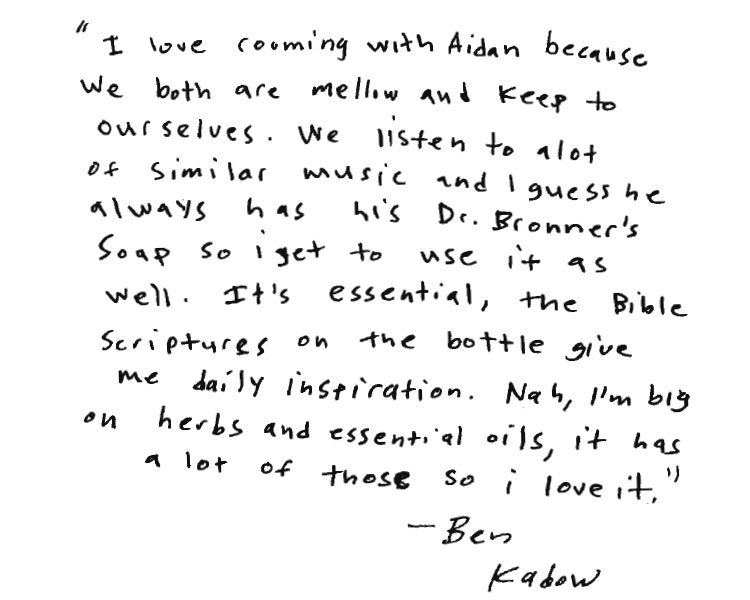 "I love rooming with Aidan because
we both are mellow and keep to
ourselves. We listen to alot
of similar music and I guess he
always has his Dr. Bronner's
Soap so i get to use it as
well. It's essential, the Bible
Scriptures on the bottle give
me daily inspiration. Nah, I'm big
on herbs and essential oils, it has
a lot of those so i love it."
—Ben
Kadow